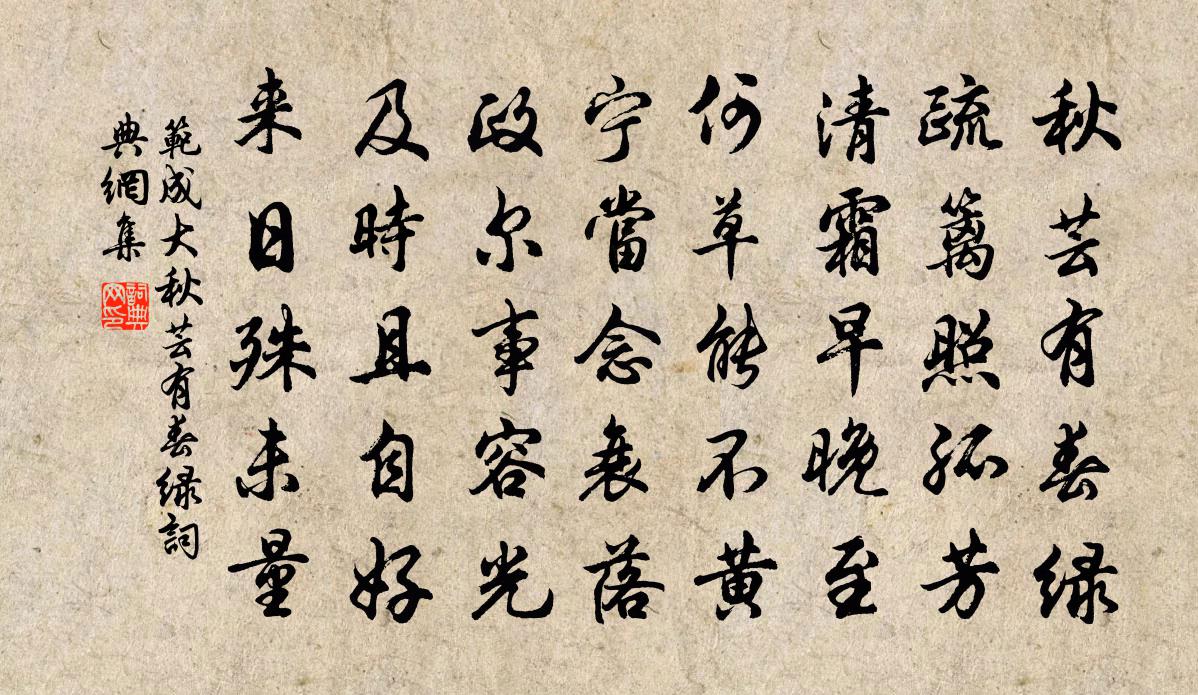 秋芸有春绿
疏篱照孤芳
清霜早晚至
何草能不黄
宁當念衰落
政尔事容光
及時且自好
来日殊未量
範成大秋芸有春绿詞
典網集
詞典网印